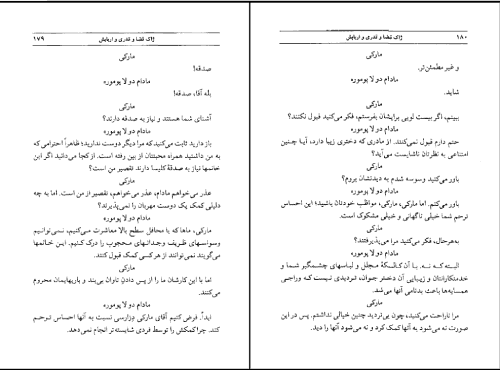 ژاک قضا و قدری و اربابش ۱۷۹
مارکی
صدقه!
مادام دو لا پومره
بله آقا، صدقه!
مارکی
آشنای شما هستند و نیاز به صدقه دارند؟
مادام دو لا پومره
باز دارید ثابت می‌کنید که مرا دیگر دوست ندارید؛ ظاهراً احترامی که
به من داشتید همراه محبتتان از بین رفته است. از کجا می‌دانید اگر این
خانمها نیاز به صدقهٔ کلیسا دارند، تقصیر من است؟
مارکی
عذر می‌خواهم مادام، عذر می‌خواهم، تقصیر از من است. اما به چه
دلیلی کمک یک دوست مهربان را نمی‌پذیرند؟
مادام دو لا پومره
مارکی، ماها که با محافل سطح بالا معاشرت می‌کنیم، نمی‌توانیم
وسواسهای ظریف وجدانهای محجوب را درک کنیم. این خانمها
می‌گویند نمی‌توانند از هر کسی کمک قبول کنند.
مارکی
اما با این کارشان ما را از پس دادن تاوان بی‌بند و باریهایمان محروم
می‌کنند.
مادام دو لا پومره
ابداً. فرض کنیم آقای مارکی دزارسی نسبت به آنها احساس ترحم
کند. چرا کمکش را توسط فردی شایسته‌تر انجام نمی‌دهد.
۱۸۰ ژاک قضا و قدری و اربابش
مارکی
و غیر مطمئن‌تر.
مادام دو لا پومره
شاید.
مارکی
ببینم، اگر بیست لویی برایشان بفرستم، فکر می‌کنید قبول نکنند؟
مادام دو لا پومره
حتم دارم قبول نمی‌کنند. از مادری که دختری زیبا دارد، آیا چنین
امتناعی به نظرتان ناشایست می‌آید؟
مارکی
باور می‌کنید وسوسه شدم به دیدنشان بروم؟
مادام دو لا پومره
باور می‌کنم. اما مارکی، مارکی، مواظب خودتان باشید؛ این احساس
ترحم شما خیلی ناگهانی و خیلی مشکوک است.
مارکی
به‌هرحال، فکر می‌کنید مرا می‌پذیرفتند؟
مادام دو لا پومره
البته که نه. با آن کالسکهٔ مجلل و لباسهای چشمگیر شما و
خدمتکارانتان و زیبایی آن دختر جوان، تردیدی نیست که وراجی
همسایه‌ها باعث بدنامی آنها می‌شد.
مارکی
مرا ناراحت می‌کنید، چون بی‌تردید چنین خیالی نداشتم. پس در این
صورت نه می‌شود به آنها کمک کرد و نه می‌شود آنها را دید.